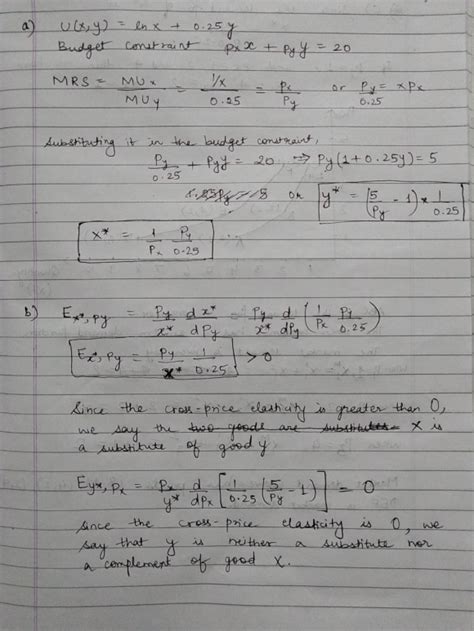 a) U(x,y) = ln x + 0.25 y
Budget constraint Pₓx + Pyy = 20
MRS = MUₓ/MUy = (1/x)/0.25 = Pₓ/Py or Py/0.25 = xPₓ
Substituting it in the budget constraint,
Py/0.25 + Pyy = 20 ⇒ Py(1+0.25y) = 5
or y* = (5/Py - 1) * 1/0.25
x* = 1/Pₓ Py/0.25
b) Eₓ*,Py = Py/x* dx*/dPy = Py/x* d/dPy (1/Pₓ Py/0.25)
Eₓ*,Py = Py/x* 1/0.25 > 0
Since the cross-price elasticity is greater than 0,
we say the two goods are substitutes x is
a substitute of good y
Ey*,Pₓ = Pₓ/y* d/dPₓ [1/0.25 (5/Py - 1)] = 0
Since the cross-price elasticity is 0, we
say that y is neither a substitute nor
a complement of good x.